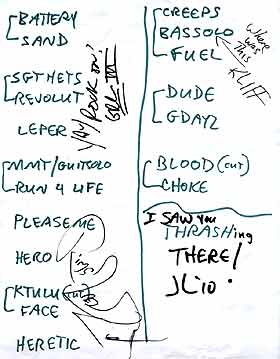 BATTERY
SAND
SGT HETS
REVOLUT
LEPER
MMT/GUITSOLO
RUN 4 LIFE
PLEASE ME
HERO
KTULU (cut)
FACE
HERETIC
YAY ROCK ON!
CREEPS
BASSOLO
FUEL
WHERE
WAS
THIS
DUDE
GDAYZ
BLOOD (cut)
CHOKE
I SAW YOU
THRASHing
THERE!